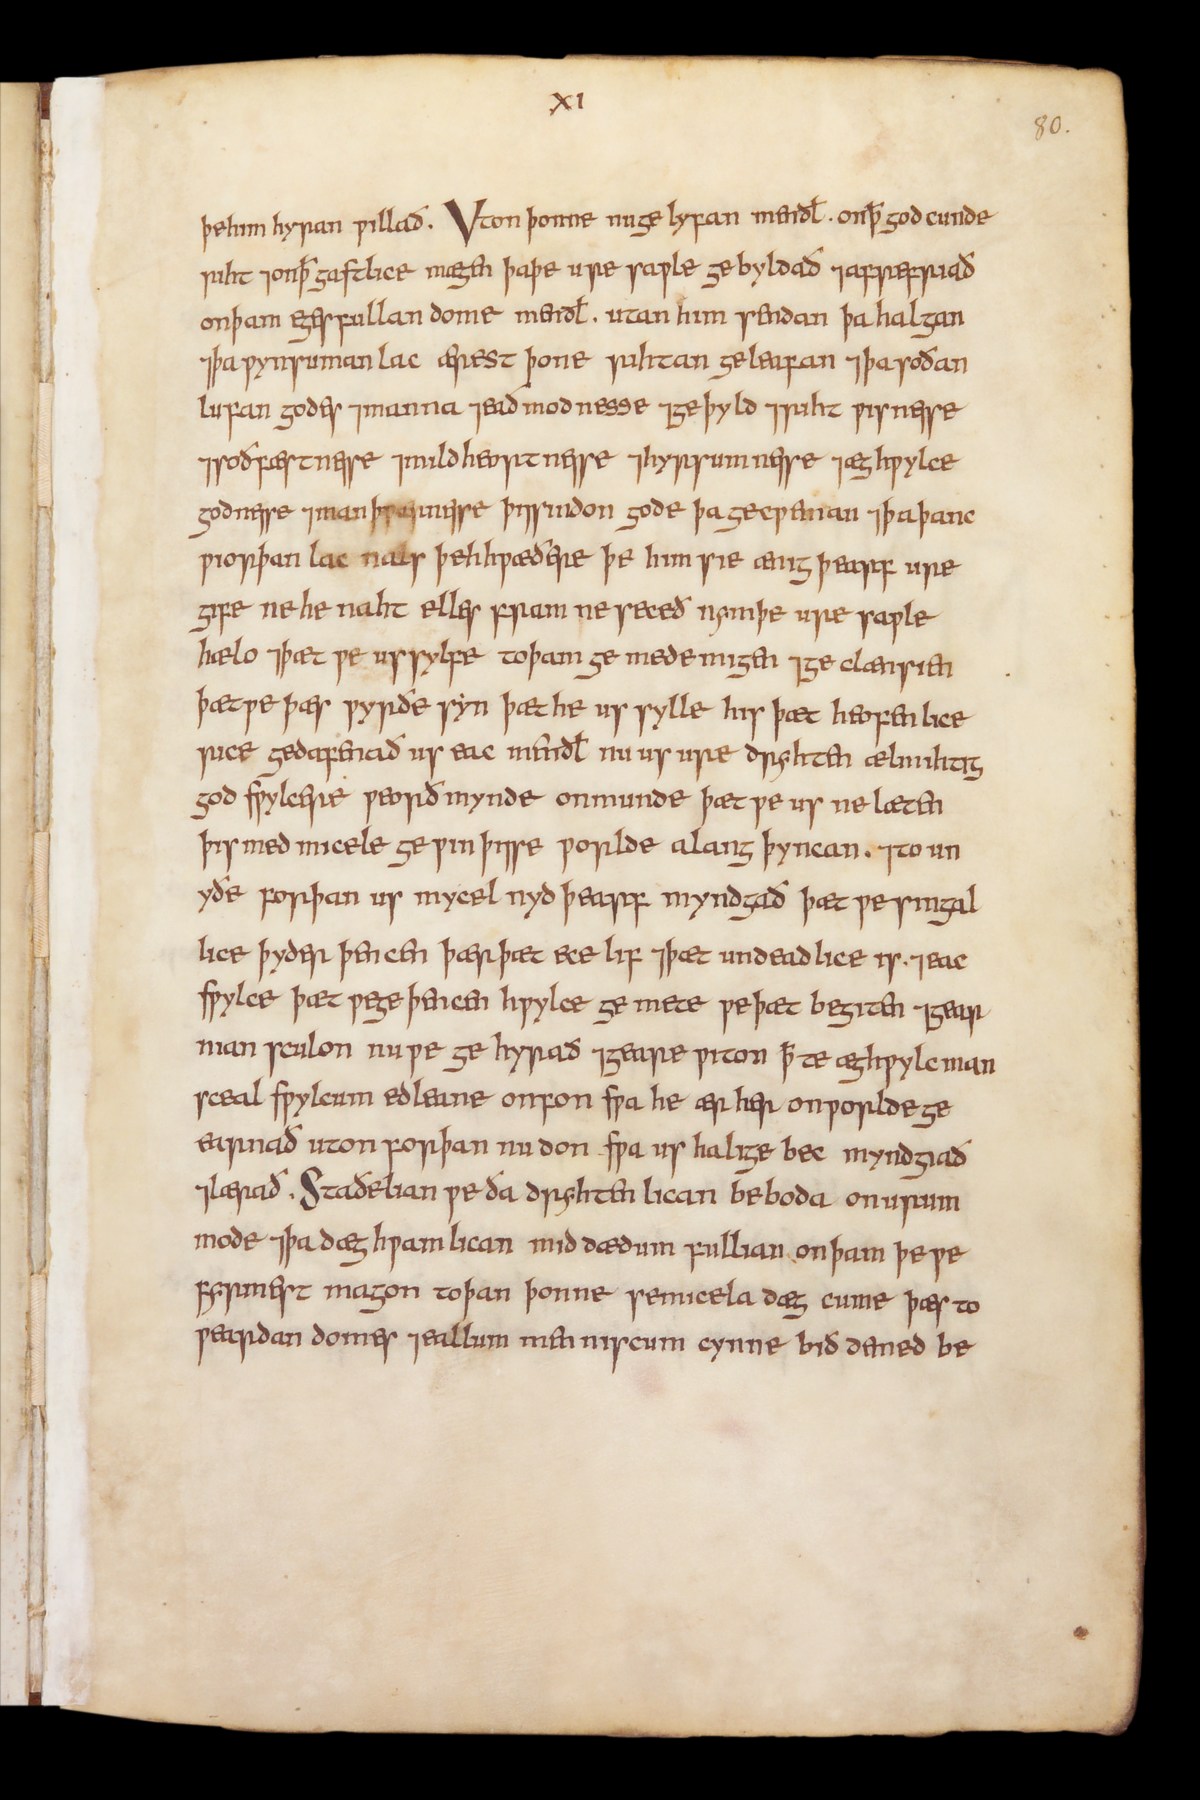 XI
80.
þe him hyran ƿillað. Vton þonne nu gelyfan men ða łł. on þ godcunde
riht ⁊ on þ gastlice mægen þa þe ure saƿle gebyldað ⁊ afrefriað
on þam egesfullan dome men ðł. utan him sendan þa halgan
⁊ þa ƿynsuman lac ærest þone rihtan geleafan ⁊ þa soðan
lufan godes ⁊ manna ⁊ eaðmodnesse ⁊ geþyld ⁊ riht ƿisnesse
⁊ soðfæstnesse ⁊ mildheortnesse ⁊ hyrsumnesse ⁊ æghƿylce
godnesse ⁊ manþƿærnesse þis sindon gode þa gecƿeman ⁊ þa þanc
ƿiorþan lac nals þeh hƿæðere þe him sie ænig þearf ure
gife ne he naht elles fram ne seceð nymþe ure saƿle
hælo ⁊ þæt ƿe us sylfe to þam gemedemigen ⁊ geclænsien
þæt ƿe þæs ƿyrðe syn þæt he us sylle his þæt heofenlice
rice gedafenað us eac men ðł nu us ure dryhten ælmihtig
god sƿylcere ƿeorðmynde onmunde þæt ƿe us ne læten
þis medmicele geƿin þisse ƿorlde alang þyncan. ⁊ to un
yðe forþan us mycel nydþearf myndgað þæt ƿe singal
lice þyder þencen þær þæt ece lif ⁊ þæt undeadlice is. ⁊ eac
sƿylce þæt ƿe geþencen hƿylce gemete ƿe þæt begiten ⁊ gear
nian sculon nu ƿe gehyrað ⁊ geare ƿiton þ te æghƿylc man
sceal sƿylcum edleane onfon sƿa he ær her on ƿorlde ge
earnað uton forþan nu don sƿa us halige bec myndgiað
⁊ lærað. Staðelian ƿe ða dryhtenlican beboda on urum
mode ⁊ þa dæghƿamlican mid dædum fullian on þam þe ƿe
fyrmest magon to þan þonne se micela dæg cume þæs to
ƿeardan domes ⁊ eallum menniscum cynne bið demed be